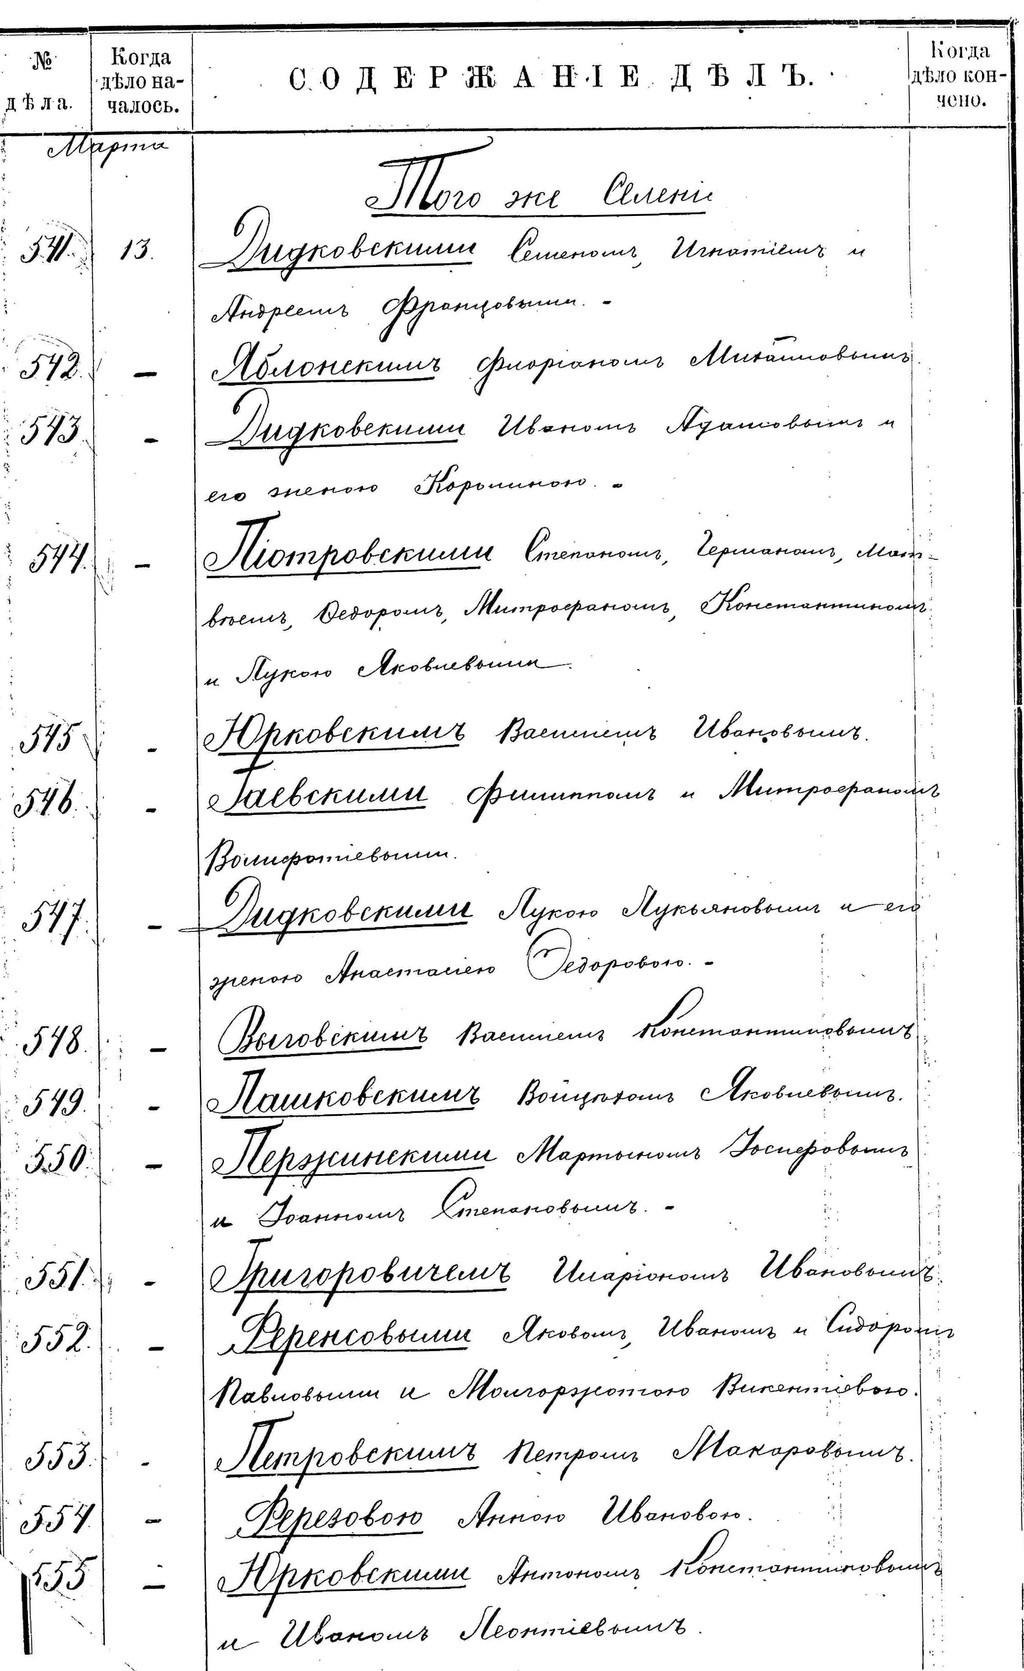 № дѣла.
Когда дѣло началось.
СОДЕРЖАНІЕ ДѢЛЪ.
Когда дѣло кончено.
Марта
Того же Селенія
541. 13. Дидковскими Семеномъ, Игнатіемъ и
Андреемъ Францовыми. -
542. — Яблонскимъ Флоріаномъ Михайловымъ.
543. — Дидковскими Иваномъ Адамовымъ и
его женою Каролиною. -
544. — Піотровскими Степаномъ, Германомъ, Мат-
вѣемъ, Федоромъ, Митрофаномъ, Константиномъ
и Лукою Яковлевыми.
545 - Юрковскимъ Василіемъ Ивановымъ.
546. - Гаевскими Филиппомъ и Митрофаномъ
Бонифатіевыми.
547. — Дидковскими Лукою Лукьяновымъ и его
женою Анастасіею Федоровою. -
548. — Выговскимъ Василіемъ Константиновымъ
549. - Пашковскимъ Войцѣхомъ Яковлевымъ.
550. — Пержинскими Мартыномъ Іосифовымъ
и Іоанномъ Степановымъ. -
551. - Григоровичемъ Иларіономъ Ивановымъ.
552. — Ференсовыми Яковомъ, Иваномъ и Сидоромъ
Павловыми и Малгоржатою Викентіевою.
553. - Петровскимъ Петромъ Макаровымъ.
554. — Ферезовою Анною Ивановою.
555 — Юрковскими Антономъ Константиновымъ
и Иваномъ Леонтіевымъ.